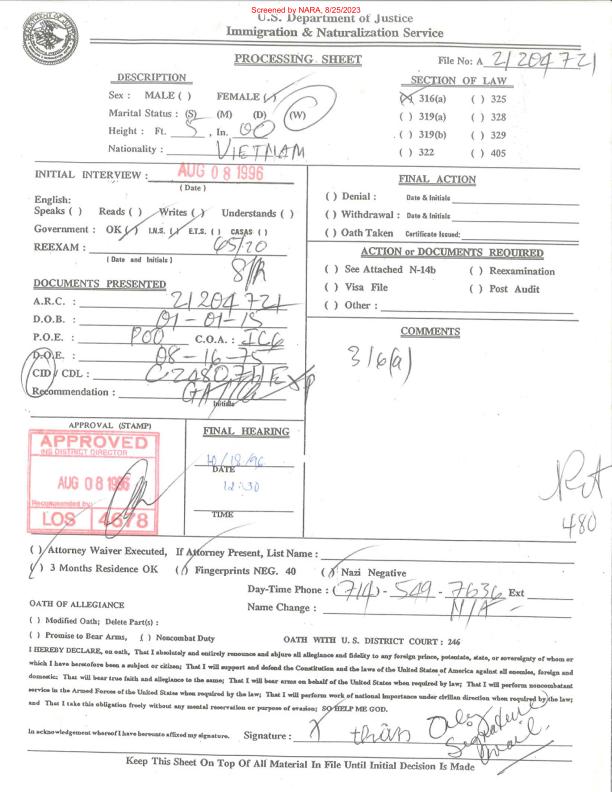 Screened by NARA, 8/25/2023
U.S. Department of Justice
Immigration & Naturalization Service
PROCESSING SHEET
File No: A 21204721
DESCRIPTION
Sex : MALE ( ) FEMALE (✓)
Marital Status : (S) (M) (D) (W)
Height : Ft. 5, In. 00
Nationality : VIETNAM
SECTION OF LAW
(X) 316(a) ( ) 325
( ) 319(a) ( ) 328
( ) 319(b) ( ) 329
( ) 322 ( ) 405
INITIAL INTERVIEW : AUG 08 1996
(Date)
English:
Speaks ( ) Reads ( ) Writes (✓) Understands ( )
Government : OK (✓) I.N.S. (✓) E.T.S. ( ) CASAS ( )
REEXAM : 65/20
(Date and Initials)
FINAL ACTION
( ) Denial : Date & Initials
( ) Withdrawal : Date & Initials
( ) Oath Taken Certificate Issued:
ACTION or DOCUMENTS REQUIRED
( ) See Attached N-14b ( ) Reexamination
( ) Visa File ( ) Post Audit
( ) Other :
DOCUMENTS PRESENTED
A.R.C. : 21204721
D.O.B. : 01-01-15
P.O.E. : POO C.O.A. : IC6
D.O.E. : 08-16-75
CID / CDL :
Recommendation :
Initials
COMMENTS
316(a)
APPROVAL (STAMP)
APPROVED
INS DISTRICT DIRECTOR
AUG 08 1996
Recommended by:
LOS 4678
FINAL HEARING
10/18/96
DATE
12:30
TIME
480
( ) Attorney Waiver Executed, If Attorney Present, List Name :
(✓) 3 Months Residence OK (✓) Fingerprints NEG. 40 (✓) Nazi Negative
Day-Time Phone : (714) - 549 - 7636 Ext
Name Change : N/A -
OATH OF ALLEGIANCE
( ) Modified Oath; Delete Part(s) :
( ) Promise to Bear Arms, ( ) Noncombat Duty OATH WITH U.S. DISTRICT COURT : 246
I HEREBY DECLARE, on oath, That I absolutely and entirely renounce and abjure all allegiance and fidelity to any foreign prince, potentate, state, or sovereignty of whom or
which I have heretofore been a subject or citizen; That I will support and defend the Constitution and the laws of the United States of America against all enemies, foreign and
domestic; That will bear true faith and allegiance to the same; That I will bear arms on behalf of the United States when required by law; That I will perform noncombatant
service in the Armed Forces of the United States when required by the law; That I will perform work of national importance under civilian direction when required by the law;
and That I take this obligation freely without any mental reservation or purpose of evasion; SO HELP ME GOD.
In acknowledgement whereof I have hereunto affixed my signature. Signature : X thân Only Signature
Keep This Sheet On Top Of All Material In File Until Initial Decision Is Made